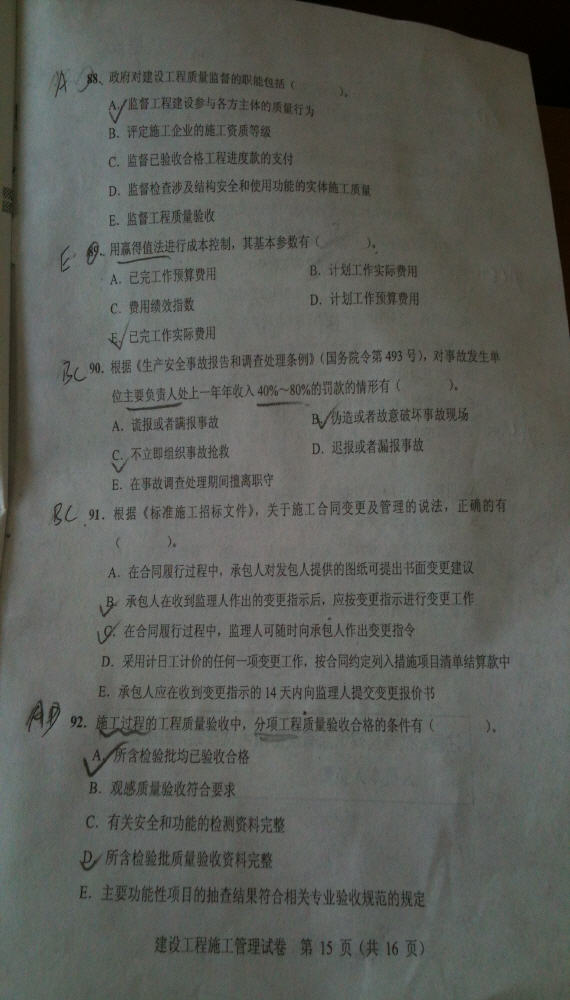 A 88、政府对建设工程质量监督的职能包括（  ）。
A. 监督工程建设参与各方主体的质量行为
B. 评定施工企业的施工资质等级
C. 监督已验收合格工程进度款的支付
D. 监督检查涉及结构安全和使用功能的实体施工质量
E. 监督工程质量验收
E 89、用赢得值法进行成本控制，其基本参数有（  ）。
A. 已完工作预算费用 B. 计划工作实际费用
C. 费用绩效指数 D. 计划工作预算费用
E. 已完工作实际费用
BC 90. 根据《生产安全事故报告和调查处理条例》（国务院令第 493 号），对事故发生单
位主要负责人处上一年年收入 40%～80%的罚款的情形有（  ）。
A. 谎报或者瞒报事故 B. 伪造或者故意破坏事故现场
C. 不立即组织事故抢救 D. 迟报或者漏报事故
E. 在事故调查处理期间擅离职守
BC 91. 根据《标准施工招标文件》，关于施工合同变更及管理的说法，正确的有
（  ）。
A. 在合同履行过程中，承包人对发包人提供的图纸可提出书面变更建议
B. 承包人在收到监理人作出的变更指示后，应按变更指示进行变更工作
C. 在合同履行过程中，监理人可随时向承包人作出变更指令
D. 采用计日工计价的任何一项变更工作，按合同约定列入措施项目清单结算款中
E. 承包人应在收到变更指示的 14 天内向监理人提交变更报价书
AD 92. 施工过程的工程质量验收中，分项工程质量验收合格的条件有（  ）。
A. 所含检验批均已验收合格
B. 观感质量验收符合要求
C. 有关安全和功能的检测资料完整
D. 所含检验批质量验收资料完整
E. 主要功能性项目的抽查结果符合相关专业验收规范的规定
建设工程施工管理试卷 第 15 页（共 16 页）